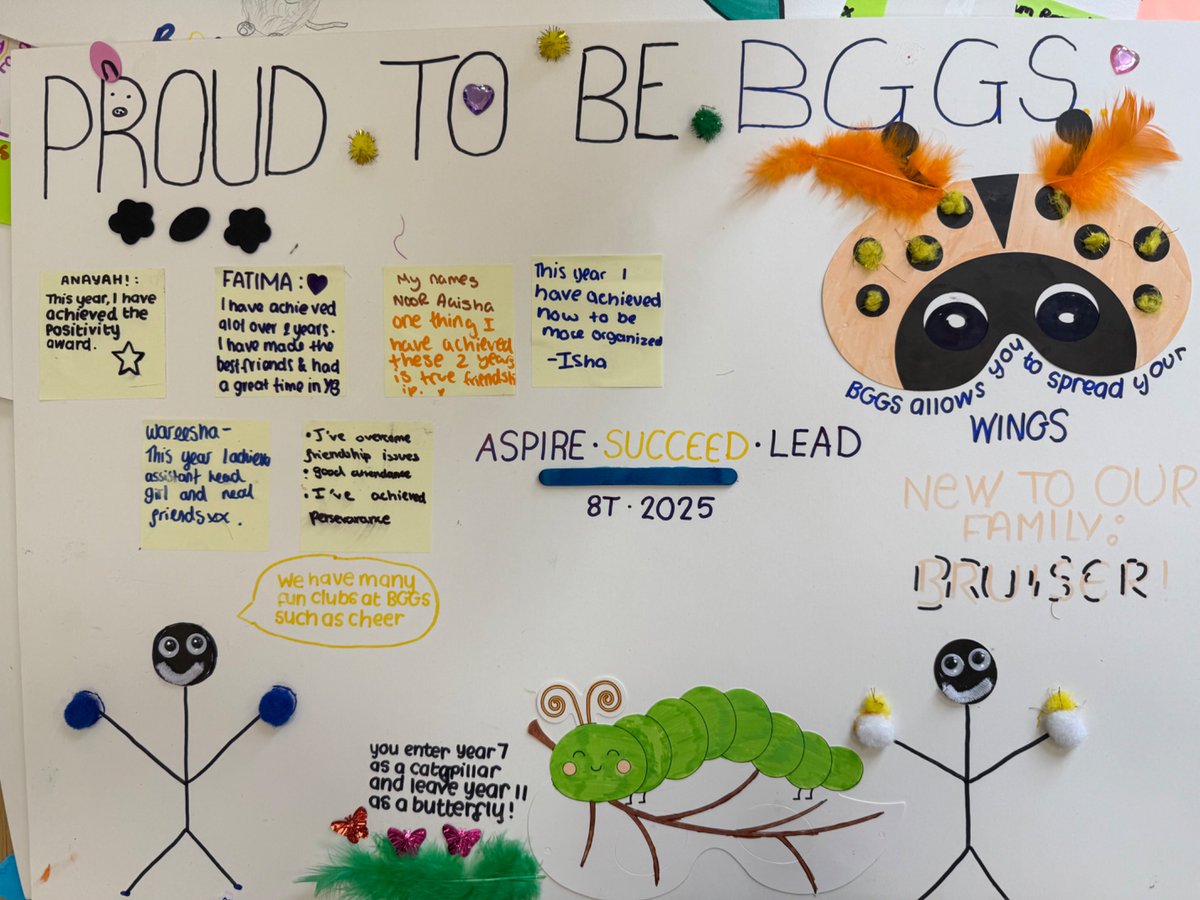 PROUD TO BE BGGS
ANAYAH! :
This year, I have
achieved the
Positivity
award.
FATIMA :
I have achieved
alot over 2 years.
I have made the
best friends & had
a great time in Y8
My names
NOOR Aaisha
one thing I
have achieved
these 2 years
is true friendship
This year I
have achieved
how to be
more organized
-Isha
BGGS allows you to spread your
WINGS
Wareesha-
This year I achieve
assistant head
girl and real
friends xx.
• I've overcome
friendship issues
• good attendance
• I've achieved
perseverance
ASPIRE · SUCCEED · LEAD
8T · 2025
NEW TO OUR
FAMILY:
BRUISER!
We have many
fun clubs at BGGS
such as cheer
you enter year 7
as a catapillar
and leave year 11
as a butterfly!